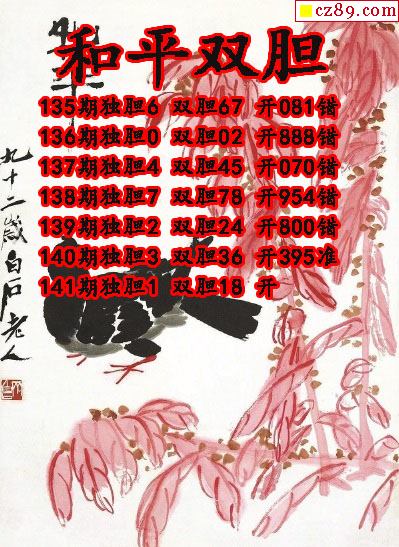 cz89.com
和平双胆
135期独胆6 双胆67 开081错
136期独胆0 双胆02 开888错
137期独胆4 双胆45 开070错
138期独胆7 双胆78 开954错
139期独胆2 双胆24 开800错
140期独胆3 双胆36 开395准
141期独胆1 双胆18 开
九十二岁白石老人